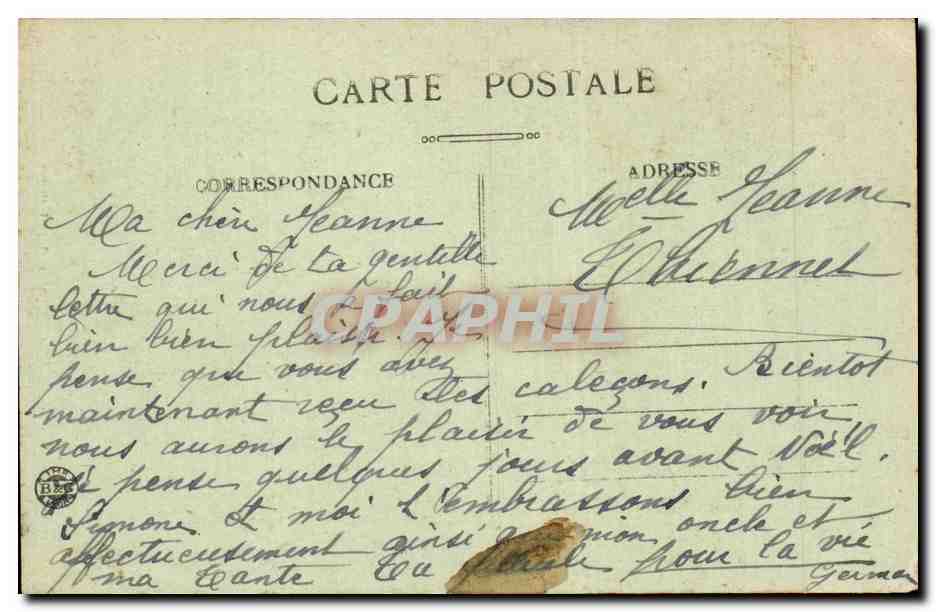 CARTE POSTALE
CORRESPONDANCE
ADRESSE
Melle Jeanne
Thiennet
Ma chère Jeanne
Merci de ta gentille
lettre qui nous a fait
bien bien plaisir. Je
pense que vous avez
maintenant reçu les caleçons. Bientot
nous aurons le plaisir de vous voir,
je pense quelques jours avant Noël.
Simone et moi t'embrassons bien
affectueusement ainsi que mon oncle et
ma tante Ta pour la vie
CPAPHIL